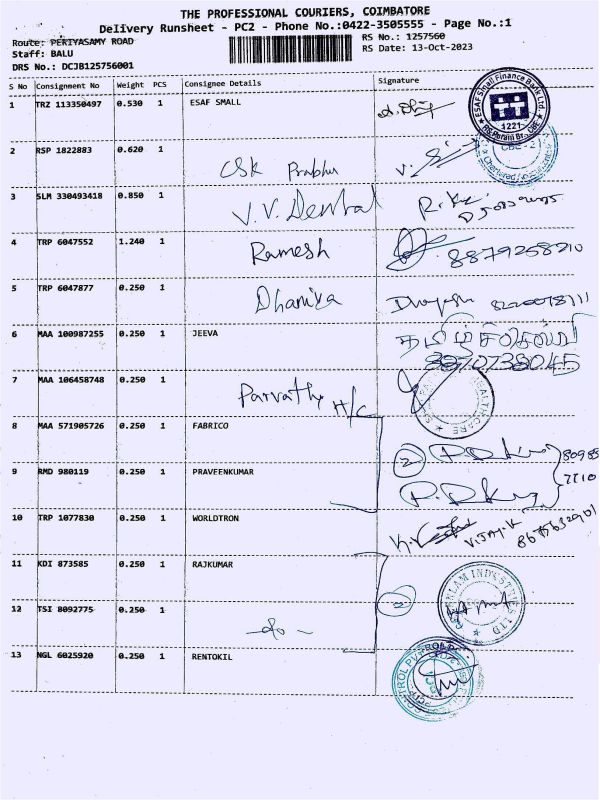 THE PROFESSIONAL COURIERS, COIMBATORE
Delivery Runsheet - PC2 - Phone No.:0422-3505555 - Page No.:1
Route: PERIYASAMY ROAD
RS No.: 1257560
Staff: BALU
RS Date: 13-Oct-2023
DRS No.: DCJB125756001
S No Consignment No Weight PCS Consignee Details Signature
1 TRZ 113350497 0.530 1 ESAF SMALL
ESAF Small Finance Bank Ltd.
1221
2 RSP 1822883 0.620 1 CSK Prabhu
CBE - 2
Chartered
3 SLM 330493418 0.850 1 V.V.Dental
4 TRP 6047552 1.240 1 Ramesh 8879258210
5 TRP 6047877 0.250 1 Dhanika
6 MAA 100987255 0.250 1 JEEVA தமிழ்செல்வி
7 MAA 106458748 0.250 1 Parvathy H/C
HEALTH CARE
8 MAA 571905726 0.250 1 FABRICO
2
9 RMD 980119 0.250 1 PRAVEENKUMAR
10 TRP 1077830 0.250 1 WORLDTRON VIJAY.K
11 KDI 873585 0.250 1 RAJKUMAR
12 TSI 8092775 0.250 1 -do-
INDUSTRIES LTD
13 NGL 6025920 0.250 1 RENTOKIL